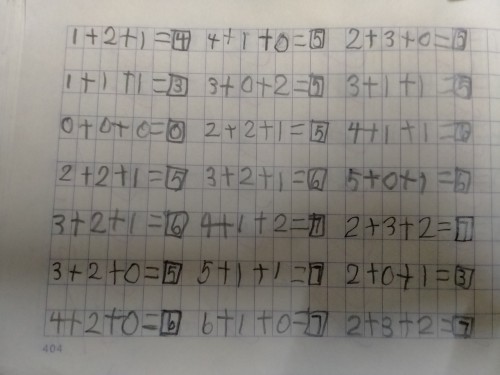 1+2+1=4 4+1+0=5 2+3+0=5
1+1+1=3 3+0+2=5 3+1+1=5
0+0+0=0 2+2+1=5 4+1+1=6
2+2+1=5 3+2+1=6 5+0+1=6
3+2+1=6 4+1+2=7 2+3+2=7
3+2+0=5 5+1+1=7 2+0+1=3
4+2+0=6 6+1+0=7 2+3+2=7
404